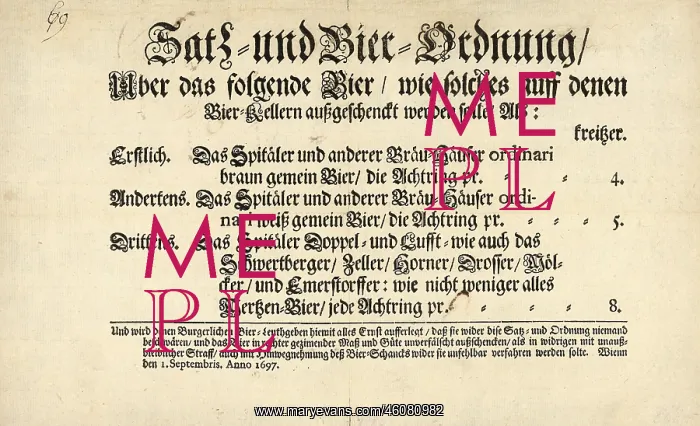 69
Satz-und Bier-Ordnung/
Uber das folgende Bier / wie solches auff denen
Bier-Kellern außgeschenckt werden solle. Als:
kreitzer.
Erstlich. Das Spitäler und anderer Bräu-Häuser ordinari
braun gemein Bier/ die Achtring pr. 4.
Andertens. Das Spitäler und anderer Bräu-Häuser ordi-
nari weiß gemein Bier/ die Achtring pr. 5.
Drittens. Das Spitäler Doppel- und Lufft- wie auch das
Schwertberger/ Zeller/ Horner/ Drosser/ Möl-
cker/ und Emerstorffer: wie nicht weniger alles
Mertzen-Bier/ jede Achtring pr. 8.
Und wird denen Burgerlichen Bier-Leuthgeben hiemit alles Ernst aufferlegt / daß sie wider dise Satz- und Ordnung niemand
beschwären/ und das Bier in rechter gezimender Maß und Güte unverfälscht außschencken/ als in widrigen mit unauß-
bleiblicher Straff/ auch mit Hinwegnehmung deß Bier-Schancks wider sie unfehlbar verfahren werden solte. Wienn
den 1. Septembris, Anno 1697.
ME
PL
ME
PL
www.maryevans.com/46080982